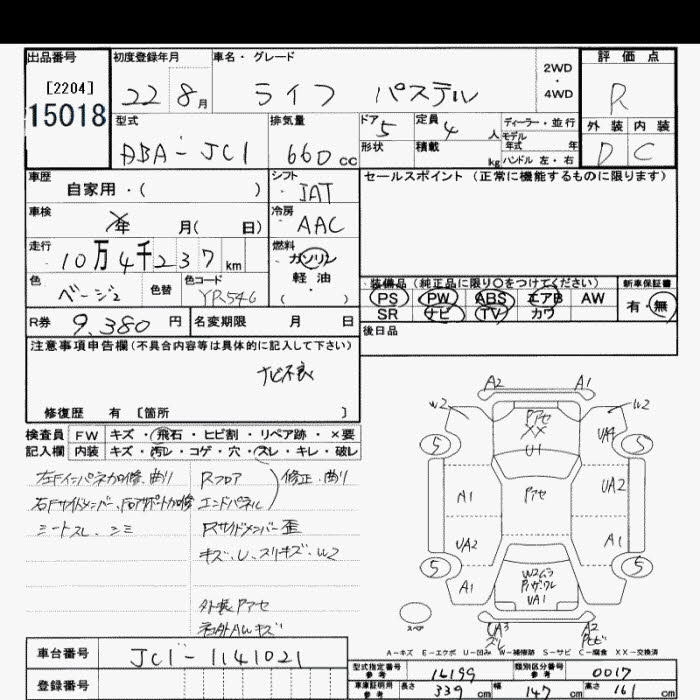 出品番号
[2204]
15018
初度登録年月
22 8月
車名・グレード
ライフ パステル
2WD
・
4WD
評価点
R
外装 内装
D C
型式
DBA-JC1
排気量
660cc
ドア 5
定員 4人
ディーラー・並行
モデル
年式 年
形状
積載 kg
ハンドル 左・右
車歴
自家用・( )
シフト
IAT
セールスポイント (正常に機能するものに限ります)
車検
年 月( 日)
冷房
AAC
走行
10万4千237km
燃料
ガソリン
軽油
( )
色
ベージュ
色替
色コード
YR546
装備品(純正品に限り○をつけてください)
PS PW ABS エアB AW
SR ナビ TV カワ
新車保証書
有・無
R券 9,380円
名変期限 月 日
後日品
注意事項申告欄(不具合内容等は具体的に記入して下さい)
ナビ不良
修復歴 有 [箇所 ]
検査員
記入欄
FW キズ・飛石・ヒビ割・リペア跡・×要
内装 キズ・汚レ・コゲ・穴・スレ・キレ・破レ
左Fインパネ加修、曲り
シートスレ、シミ
Rフロア
エンドパネル
修正、曲り
Rサイドメンバー歪
キズ、U、スリキズ、W2
外装Pアセ
右外AWキズ
A2 A1
W2 W2
Pアセ
XX
U1
5 5
A1 Pアセ UA2
UA2 A1
5 5
A1
UA1
スペア
UA3 A2
A-キズ E-エクボ U-凹み W-補修跡 S-サビ C-腐食 XX-交換済
車台番号
JC1-1141021
登録番号
型式指定番号
参考
14199
類別区分番号
参考
0017
車庫証明用
参考
長さ 339cm 幅 147cm 高さ 161cm